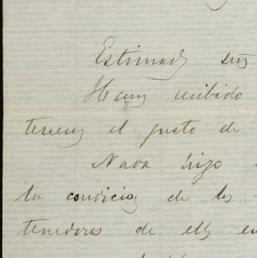 Estimad
Hemos recibido
tenemos el gusto de
Nava hijo
la condicion de los
tenedores de ells en